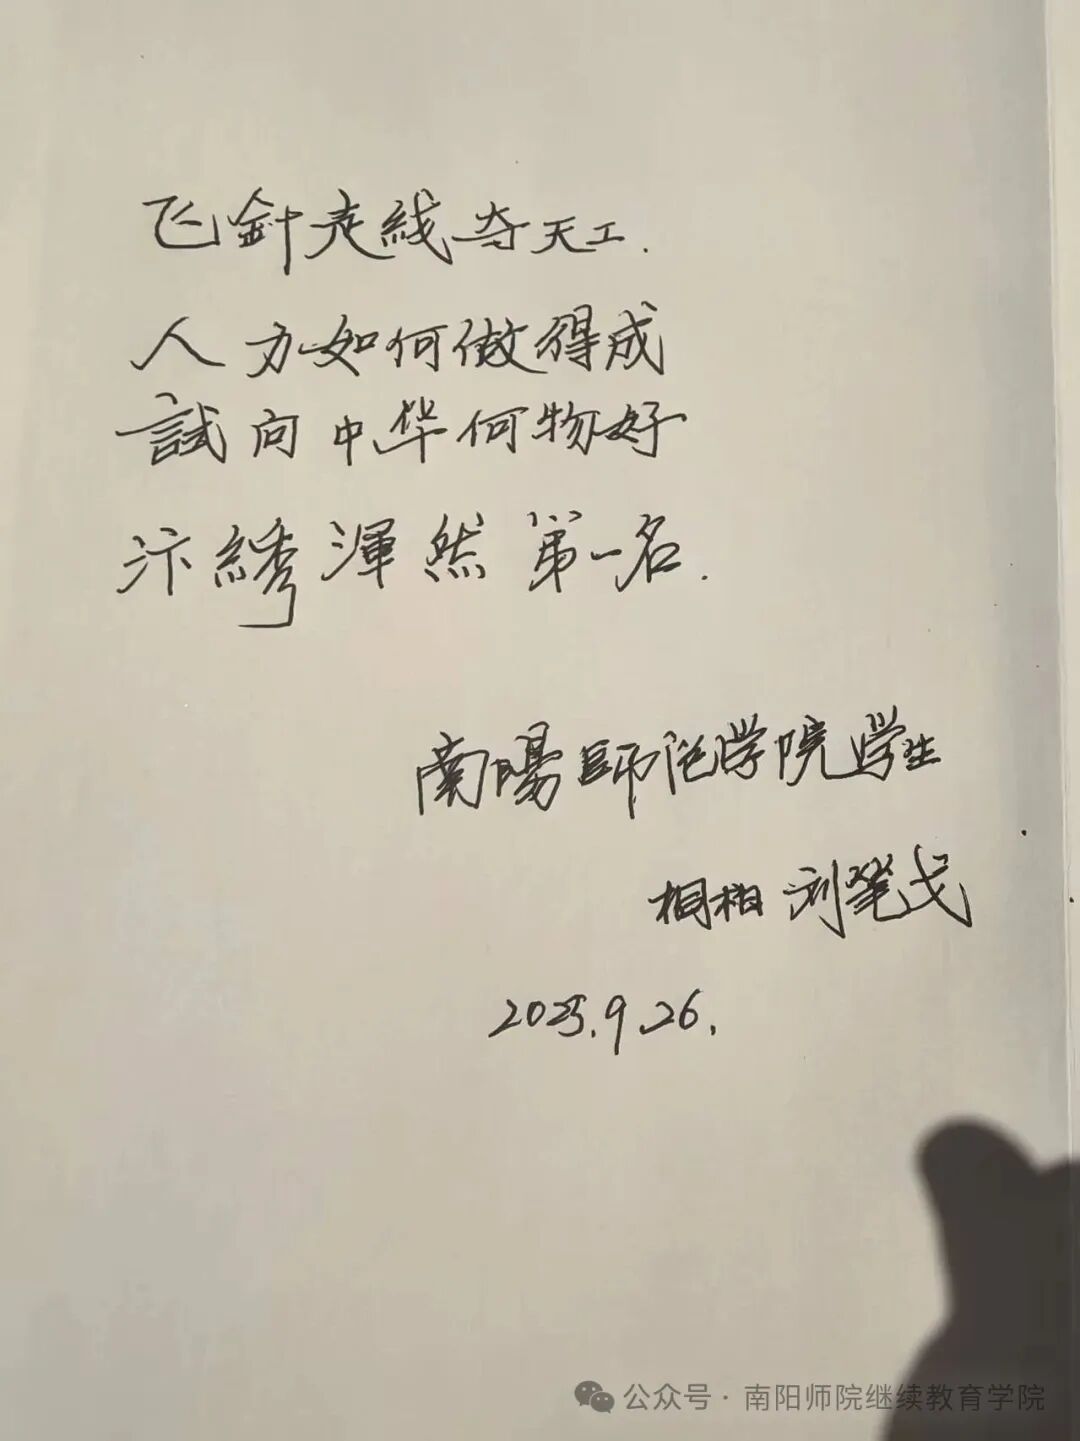 飞針走线夺天工.
人力如何做得成
試问中华何物好
汴綉渾然第一名.
南陽師范学院学生
桐柏 刘笔戈
2025.9.26.
公众号·南阳师院继续教育学院